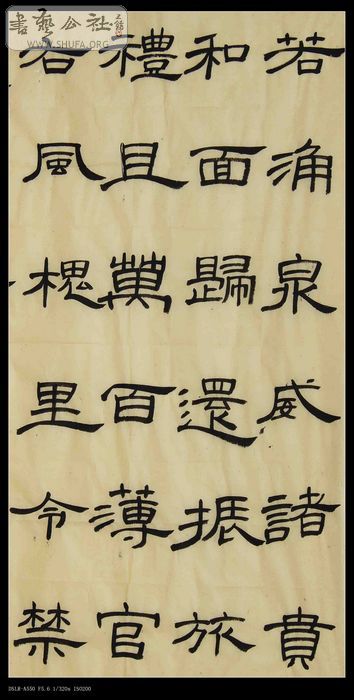 若涌泉威諸貴
和面歸還振旅
禮且百薄官
右風槐里令禁
書藝公社
WWW.SHUFA.ORG
DSLR-A550 F5.6 1/320s ISO200